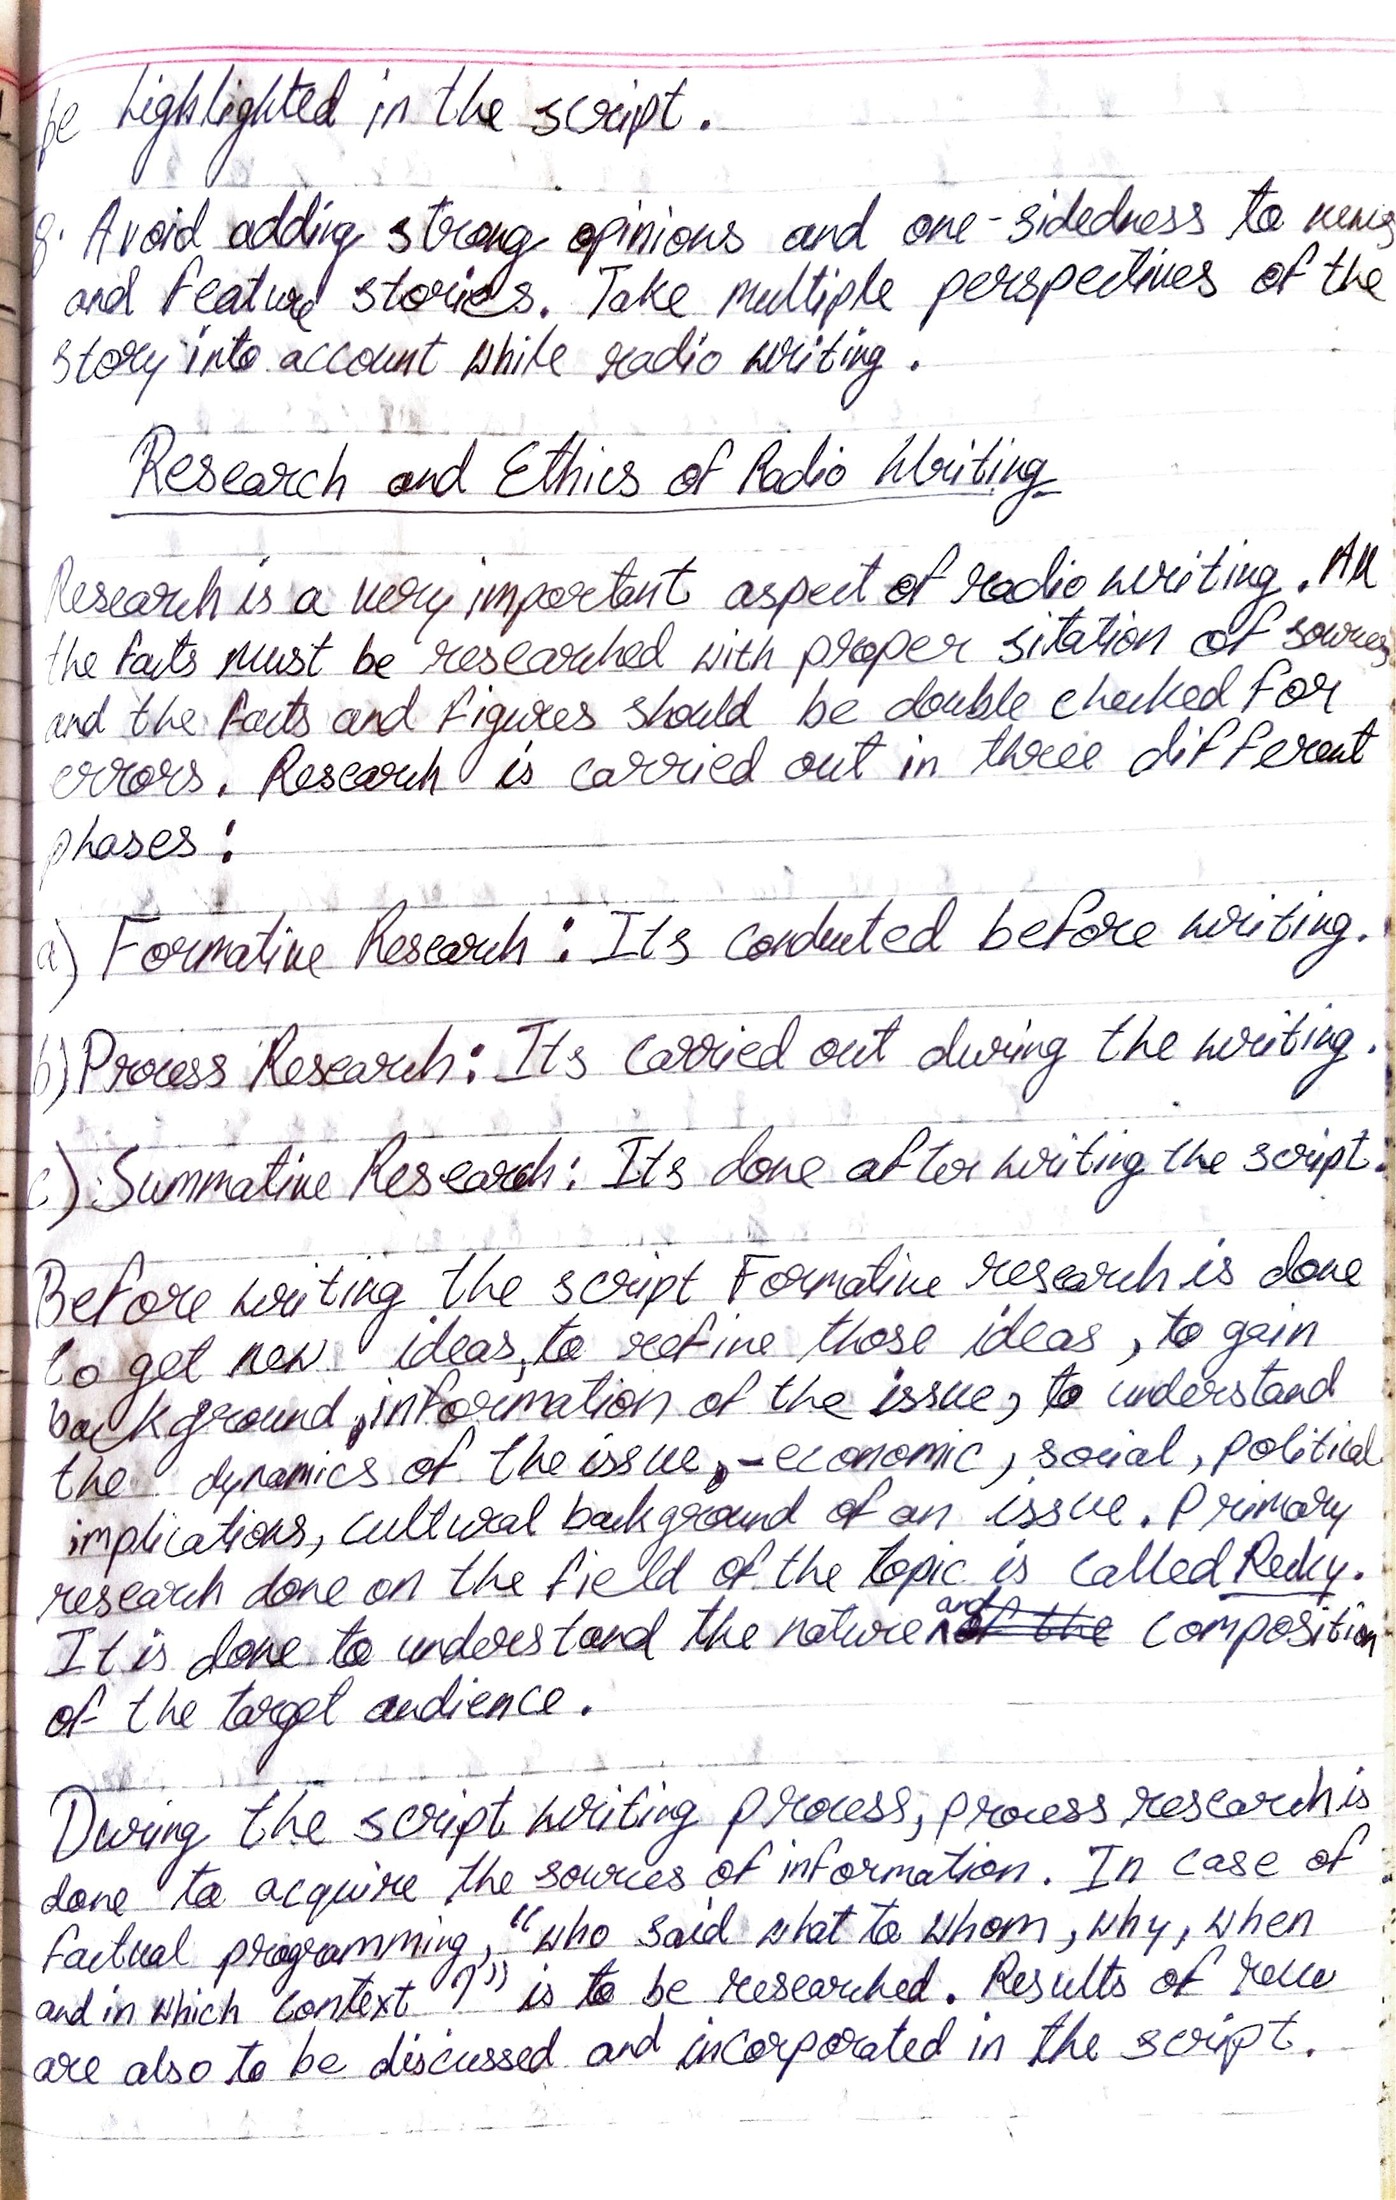 be highlighted in the script.
8. Avoid adding strong opinions and one-sidedness to news
and feature stories. Take multiple perspectives of the
story into account while radio writing.
Research and Ethics of Radio Writing
Research is a very important aspect of radio writing. All
the facts must be researched with proper sitation of sources
and the facts and figures should be double checked for
errors. Research is carried out in three different
phases:
a) Formative Research: Its conducted before writing.
b) Process Research: Its carried out during the writing.
c) Summative Research: Its done after writing the script.
Before writing the script Formative research is done
to get new ideas, to refine those ideas, to gain
background, information of the issue, to understand
the dynamics of the issue, - economic, social, political
implications, cultural background of an issue. Primary
research done on the field of the topic is called Recky.
It is done to understand the nature and composition
of the target audience.
During the script writing process, process research is
done to acquire the sources of information. In case of
factual programming, "who said what to whom, why, when
and in which context?" is to be researched. Results of
are also to be discussed and incorporated in the script.